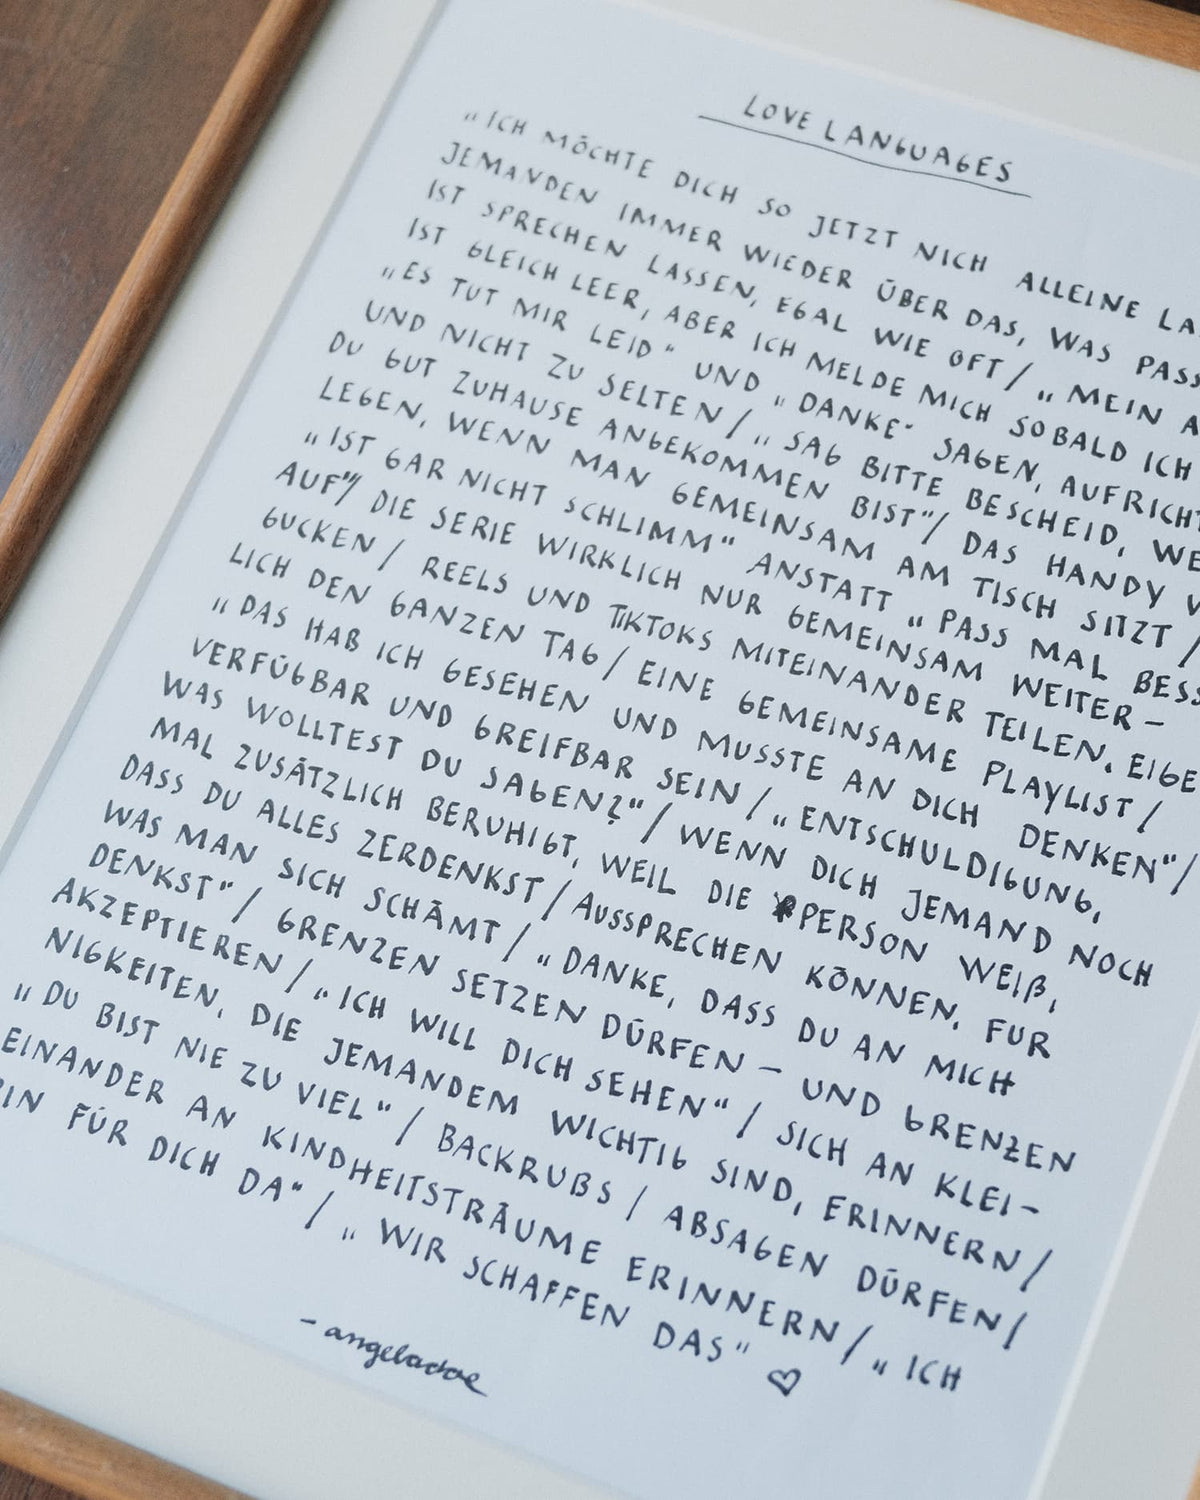 LOVE LANGUAGES
„ICH MÖCHTE DICH SO JETZT NICH ALLEINE LA
JEMANDEN IMMER WIEDER ÜBER DAS, WAS PASS
IST SPRECHEN LASSEN, EGAL WIE OFT / „MEIN A
IST GLEICH LEER, ABER ICH MELDE MICH SOBALD ICH
„ES TUT MIR LEID" UND „DANKE" SAGEN, AUFRICHT
UND NICHT ZU SELTEN / „SAG BITTE BESCHEID, WE
DU GUT ZUHAUSE ANGEKOMMEN BIST" / DAS HANDY
LEGEN, WENN MAN GEMEINSAM AM TISCH SITZT /
„IST GAR NICHT SCHLIMM" ANSTATT „PASS MAL BESS
AUF" / DIE SERIE WIRKLICH NUR GEMEINSAM WEITER-
GUCKEN / REELS UND TIKTOKS MITEINANDER TEILEN. EIGE
LICH DEN GANZEN TAG / EINE GEMEINSAME PLAYLIST /
„DAS HAB ICH GESEHEN UND MUSSTE AN DICH DENKEN" /
VERFÜGBAR UND GREIFBAR SEIN / „ENTSCHULDIGUNG,
WAS WOLLTEST DU SAGEN?" / WENN DICH JEMAND NOCH
MAL ZUSÄTZLICH BERUHIGT, WEIL DIE PERSON WEIß,
DASS DU ALLES ZERDENKST / AUSSPRECHEN KÖNNEN, FUR
WAS MAN SICH SCHÄMT / „DANKE, DASS DU AN MICH
DENKST" / GRENZEN SETZEN DÜRFEN – UND GRENZEN
AKZEPTIEREN / „ICH WILL DICH SEHEN" / SICH AN KLEI-
NIGKEITEN, DIE JEMANDEM WICHTIG SIND, ERINNERN /
„DU BIST NIE ZU VIEL" / BACKRUBS / ABSAGEN DÜRFEN /
EINANDER AN KINDHEITSTRÄUME ERINNERN / „ICH
BIN FÜR DICH DA" / „WIR SCHAFFEN DAS" ♡
- angeladoe